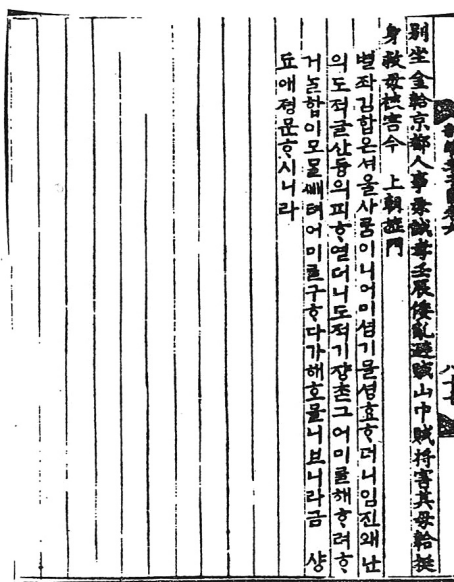 別坐金鞈京都人事母誠孝壬辰倭亂避賊山中賊將害其母鞈挺
身救母被害今 上朝旌門
별좌김합은셔울사ᄅᆞᆷ이니어미셤기믈셩효ᄒᆞ더니임진왜난
의도적글산듕의피ᄒᆞ엿더니도적기쟝ᄎᆞᆺ그어미ᄅᆞᆯ해ᄒᆞ려ᄒᆞ
거ᄂᆞᆯ합이모ᄆᆞᆯᄲᅢ텨어미ᄅᆞᆯ구ᄒᆞ다가해호믈니브니라금 샹
됴애졍문ᄒᆞ시니라